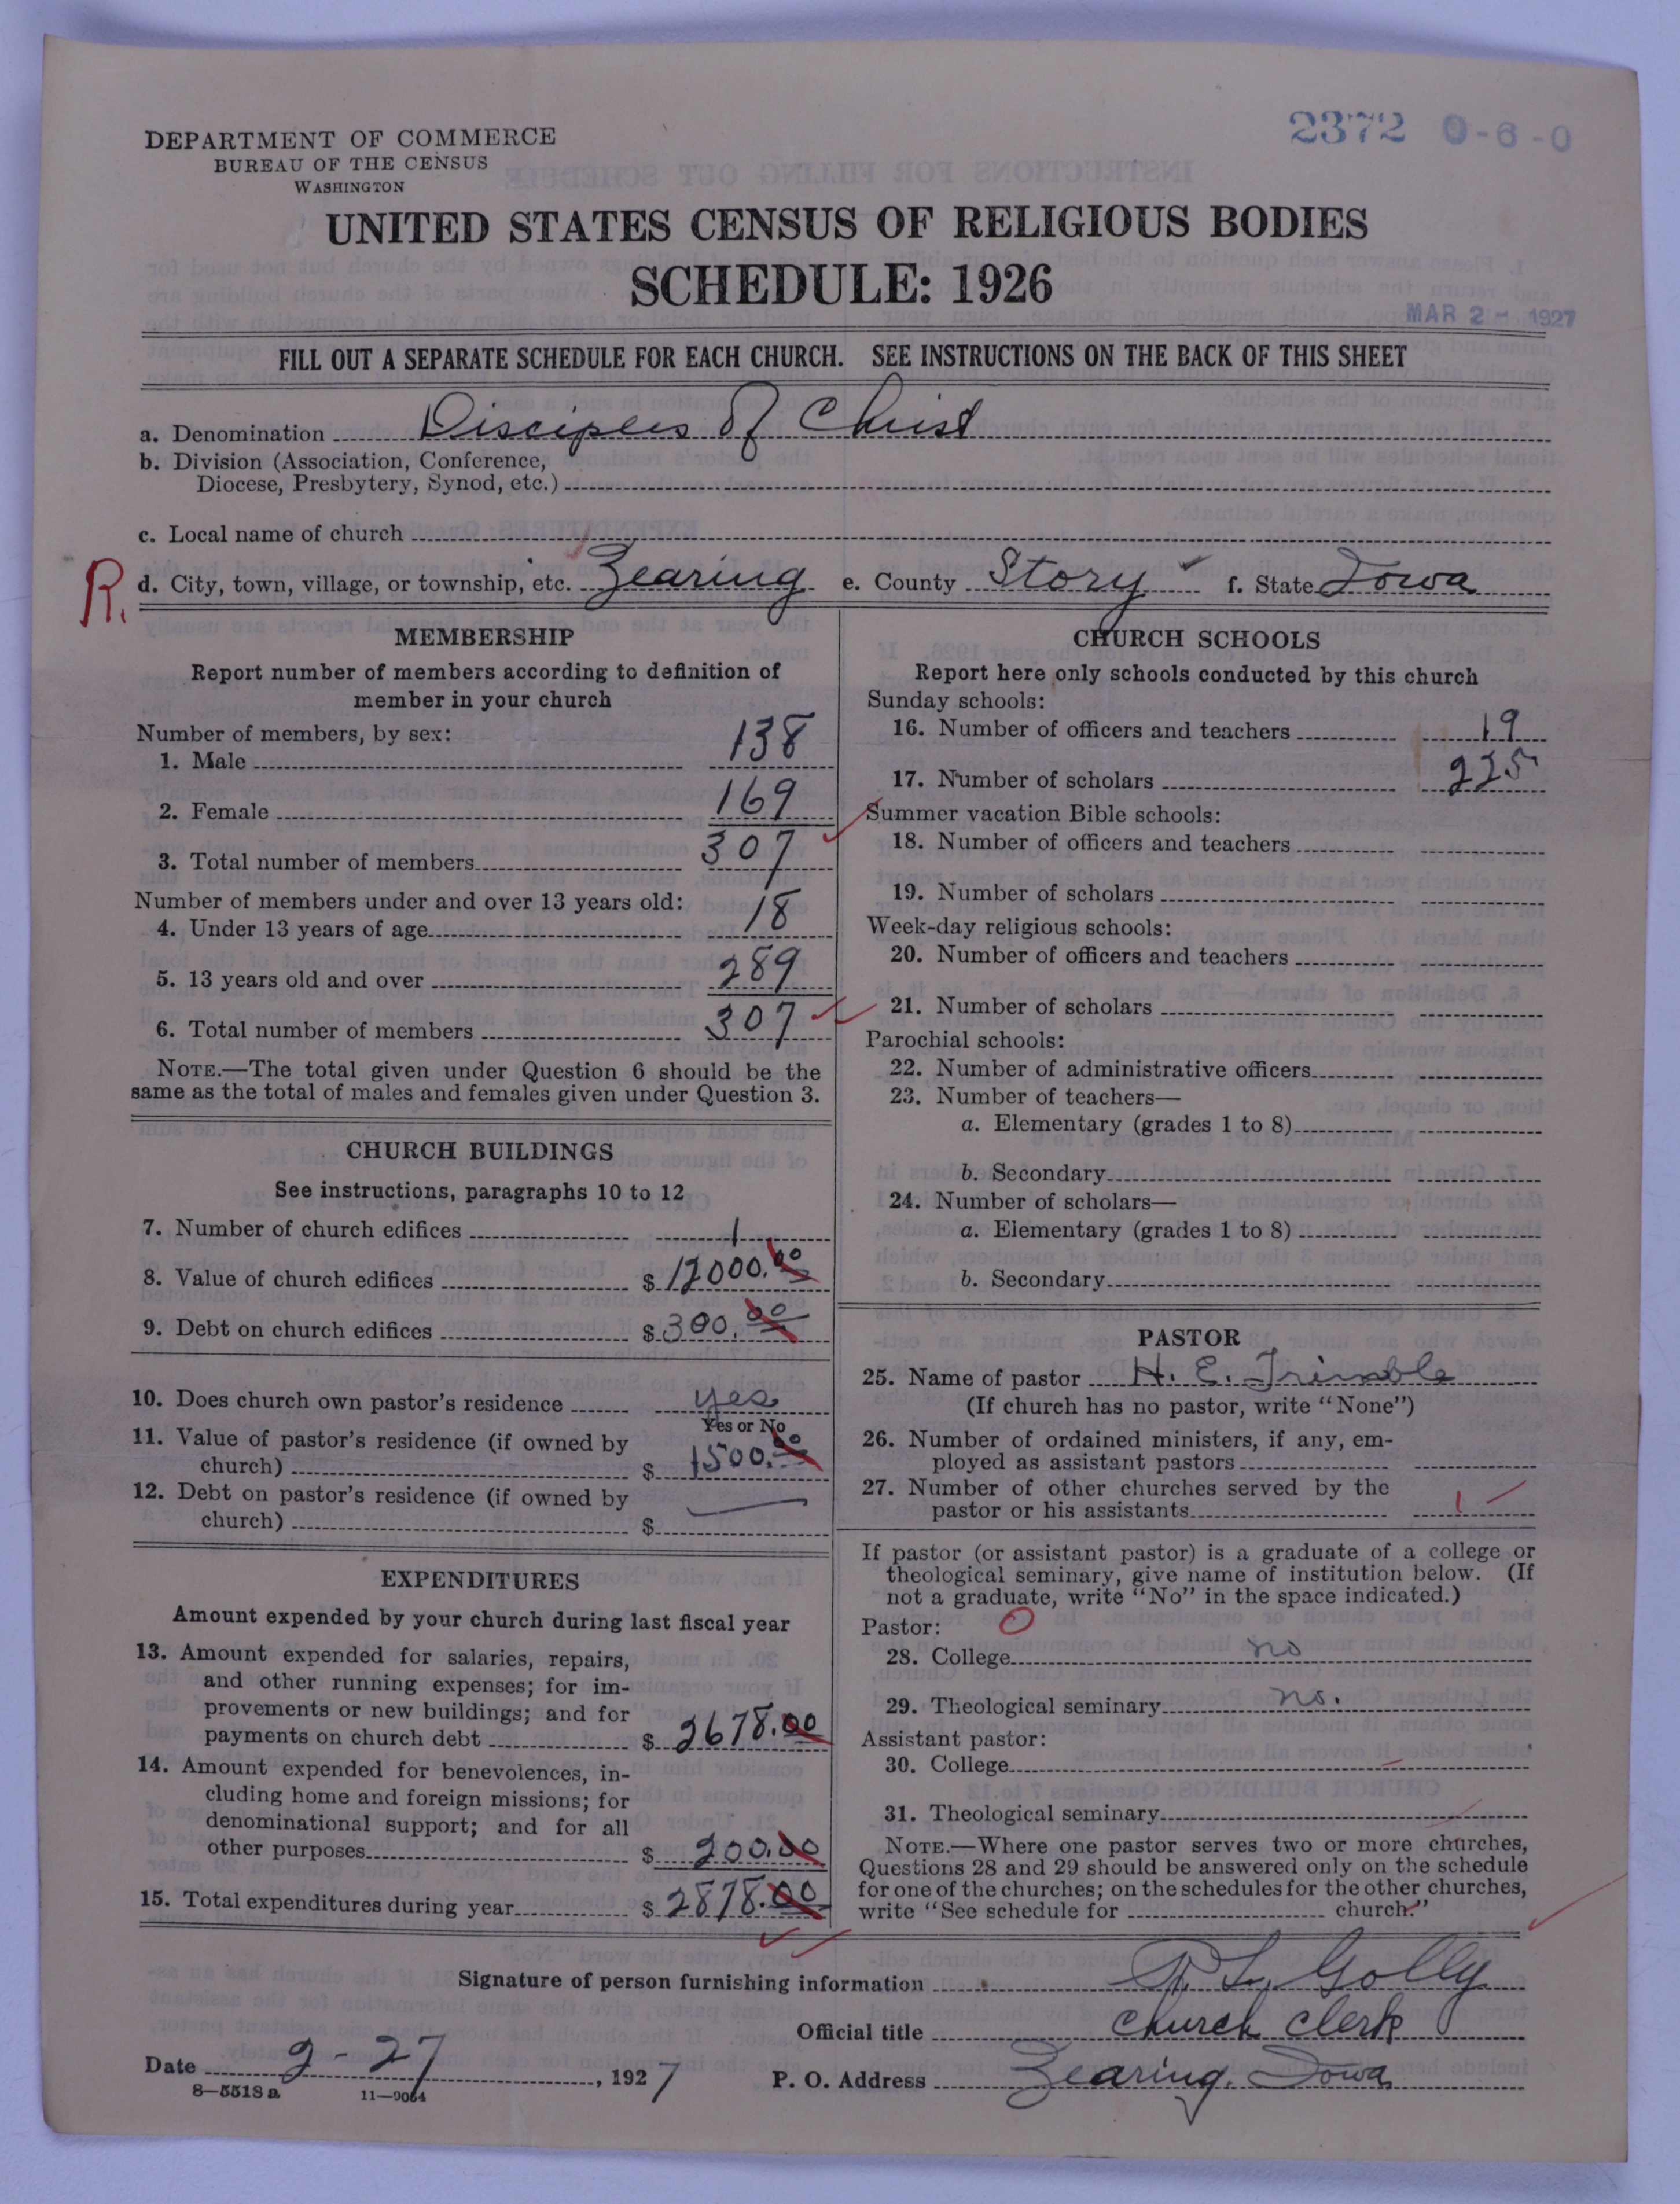 2372 0-6-0
DEPARTMENT OF COMMERCE
BUREAU OF THE CENSUS
WASHINGTON
UNITED STATES CENSUS OF RELIGIOUS BODIES
SCHEDULE: 1926
MAR 2 - 1927
FILL OUT A SEPARATE SCHEDULE FOR EACH CHURCH. SEE INSTRUCTIONS ON THE BACK OF THIS SHEET
a. Denomination Disciples Of Christ
b. Division (Association, Conference,
Diocese, Presbytery, Synod, etc.)
c. Local name of church
R. d. City, town, village, or township, etc. Zearing e. County Story f. State Iowa
MEMBERSHIP
Report number of members according to definition of
member in your church
Number of members, by sex:
1. Male 138
2. Female 169
3. Total number of members 307
Number of members under and over 13 years old:
4. Under 13 years of age 18
5. 13 years old and over 289
6. Total number of members 307
NOTE.—The total given under Question 6 should be the
same as the total of males and females given under Question 3.
CHURCH BUILDINGS
See instructions, paragraphs 10 to 12
7. Number of church edifices 1
8. Value of church edifices $ 12000.00
9. Debt on church edifices $ 300.00
10. Does church own pastor's residence yes
Yes or No
11. Value of pastor's residence (if owned by
church) $ 1500.00
12. Debt on pastor's residence (if owned by
church) $
EXPENDITURES
Amount expended by your church during last fiscal year
13. Amount expended for salaries, repairs,
and other running expenses; for im-
provements or new buildings; and for
payments on church debt $ 2678.00
14. Amount expended for benevolences, in-
cluding home and foreign missions; for
denominational support; and for all
other purposes $ 200.00
15. Total expenditures during year $ 2878.00
CHURCH SCHOOLS
Report here only schools conducted by this church
Sunday schools:
16. Number of officers and teachers 19
17. Number of scholars 225
Summer vacation Bible schools:
18. Number of officers and teachers
19. Number of scholars
Week-day religious schools:
20. Number of officers and teachers
21. Number of scholars
Parochial schools:
22. Number of administrative officers
23. Number of teachers—
a. Elementary (grades 1 to 8)
b. Secondary
24. Number of scholars—
a. Elementary (grades 1 to 8)
b. Secondary
PASTOR
25. Name of pastor H. E. Trimble
(If church has no pastor, write "None")
26. Number of ordained ministers, if any, em-
ployed as assistant pastors
27. Number of other churches served by the
pastor or his assistants 1
If pastor (or assistant pastor) is a graduate of a college or
theological seminary, give name of institution below. (If
not a graduate, write "No" in the space indicated.)
Pastor: O
28. College no
29. Theological seminary no.
Assistant pastor:
30. College
31. Theological seminary
NOTE.—Where one pastor serves two or more churches,
Questions 28 and 29 should be answered only on the schedule
for one of the churches; on the schedules for the other churches,
write "See schedule for church."
Signature of person furnishing information R. L. Golly
Official title church clerk
Date 2-27, 1927 P. O. Address Zearing, Iowa
8—5518 a 11—9064